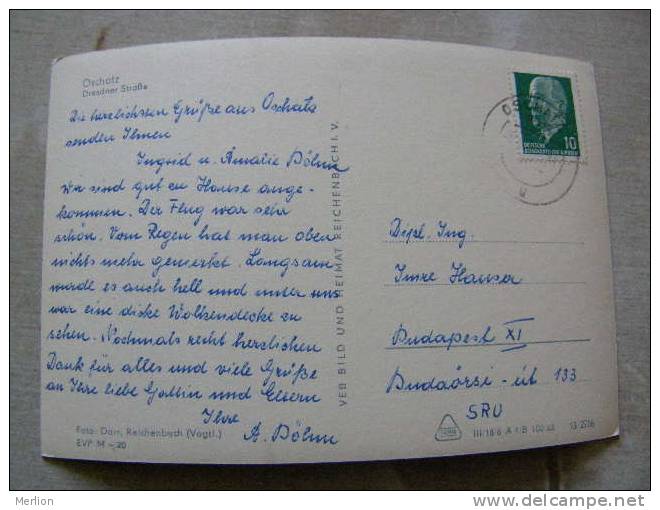 Oschatz
Dresdner Straße
Die herzlichsten Grüße aus Oschatz
senden Ihnen
Ingrid u. Amalie Böhm
Wir sind gut zu Hause ange-
kommen. Der Flug war sehr
schön. Vom Regen hat man oben
nichts mehr gemerkt. Langsam
wurde es auch hell und unter uns
war eine dicke Wolkendecke zu
sehen. Nochmals recht herzlichen
Dank für alles und viele Grüße
an Ihre liebe Gattin und Eltern
Ihre
A. Böhm
Foto: Darr, Reichenbach (Vogtl.)
EVP M -,20
VEB BILD UND HEIMAT REICHENBACH I. V.
OSCHATZ
DEUTSCHE
DEMOKRATISCHE REPUBLIK
10
Dipl. Ing.
Imre Hauser
Budapest XI
Budaörsi-út 133
SRU
III/18/6 A 1/B 13 2716
Merlion
www.delcampe.net